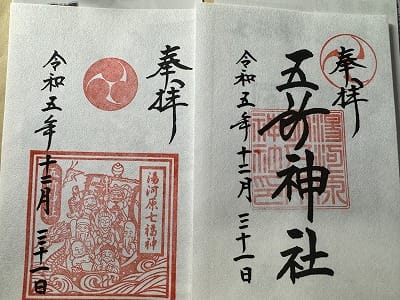 奉拝
五所神社
令和五年十二月三十一日
奉拝
湯河原七福神
令和五年十二月三十一日